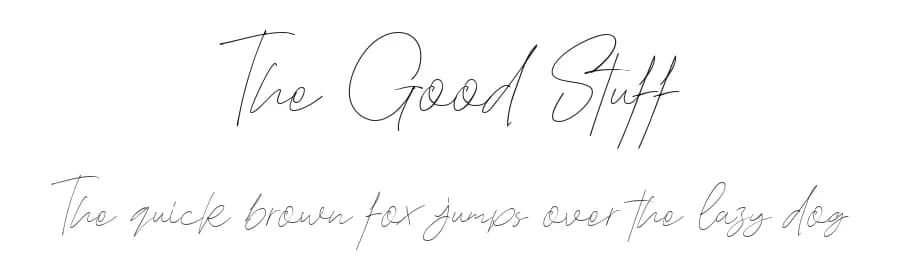 The Good Stuff
The quick brown fox jumps over the lazy dog